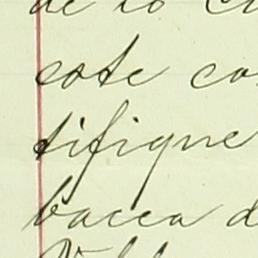 de lo
cote co
tifique
bacca d